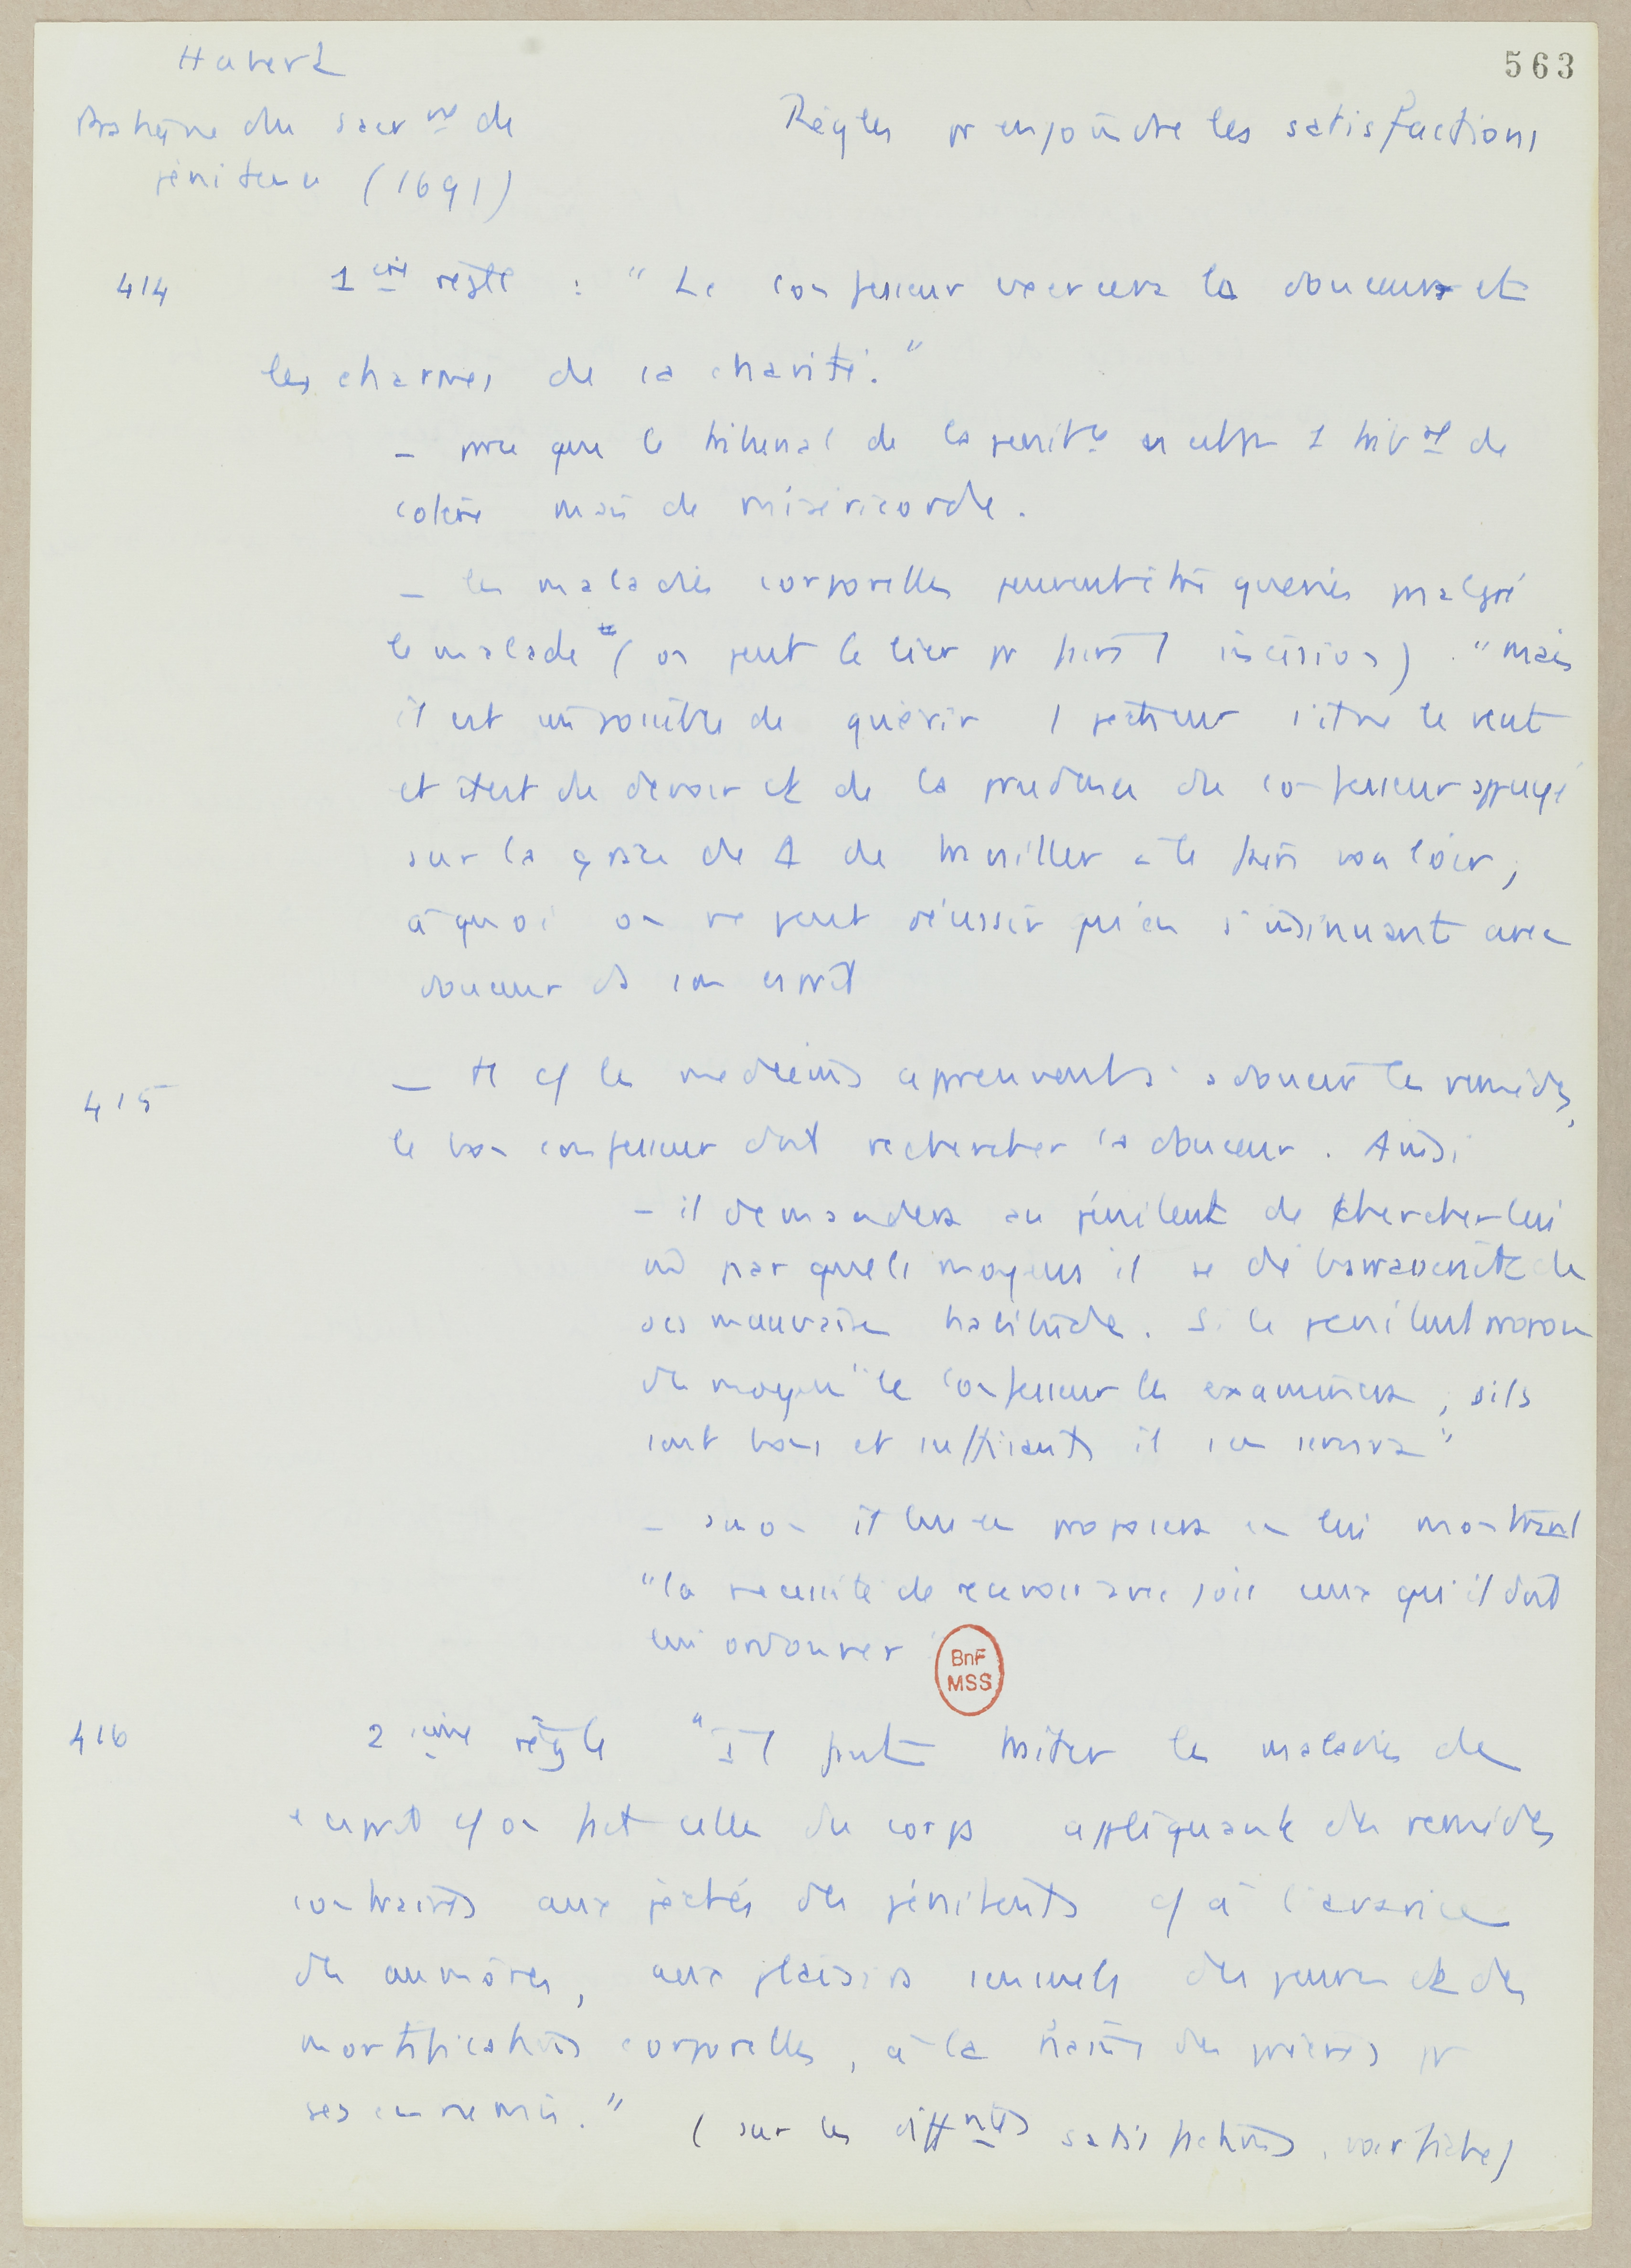 Habert
563
Pratique du sacr nt de
pénitence (1691)
Règles pr enjoindre les satisfactions
414
1 ère règle : " Le confesseur exercera la douceur et
les charmes de sa charité. "
- pce que le tribunal de la penit ce n'est pas 1 trib al de
colère mais de miséricorde.
- les maladies corporelles peuvent être guéries malgré
le malade (on peut le lier pr faire 1 incision). " mais
il est impossible de guérir 1 pécheur s'il ne le veut
et il est du devoir et de la prudence du confesseur appuyé
sur la grâce de de travailler à le faire vouloir,
à quoi on ne peut réussir qu'en s'insinuant avec
douceur ds son esprit
415
- et les médecins apprennent à adoucir les remèdes,
le bon confesseur doit rechercher la douceur. Ainsi
- il demandera au pénitent de chercher lui
m par quels moyens il se débarrasserait de
ses mauvaises habitudes. Si le pénitent propose
des moyens " le confesseur les examinera, s'ils
sont bons et suffisants il s'en servira "
- sinon il lui en proposera en lui montrant
" la nécessité de recevoir avec soin ceux qu'il doit
lui ordonner
BnF
MSS
416
2 ième règle " Il faut traiter les maladies de
l'esprit c/ on fait celles du corps appliquant des remèdes
contraires aux péchés des pénitents c/ à l'avarice
des aumônes, aux plaisirs sensuels des jeunes et des
mortifications corporelles, à la haine des prières pr
ses ennemis. " (sur les diff ntes satisfactions, voir fiche)